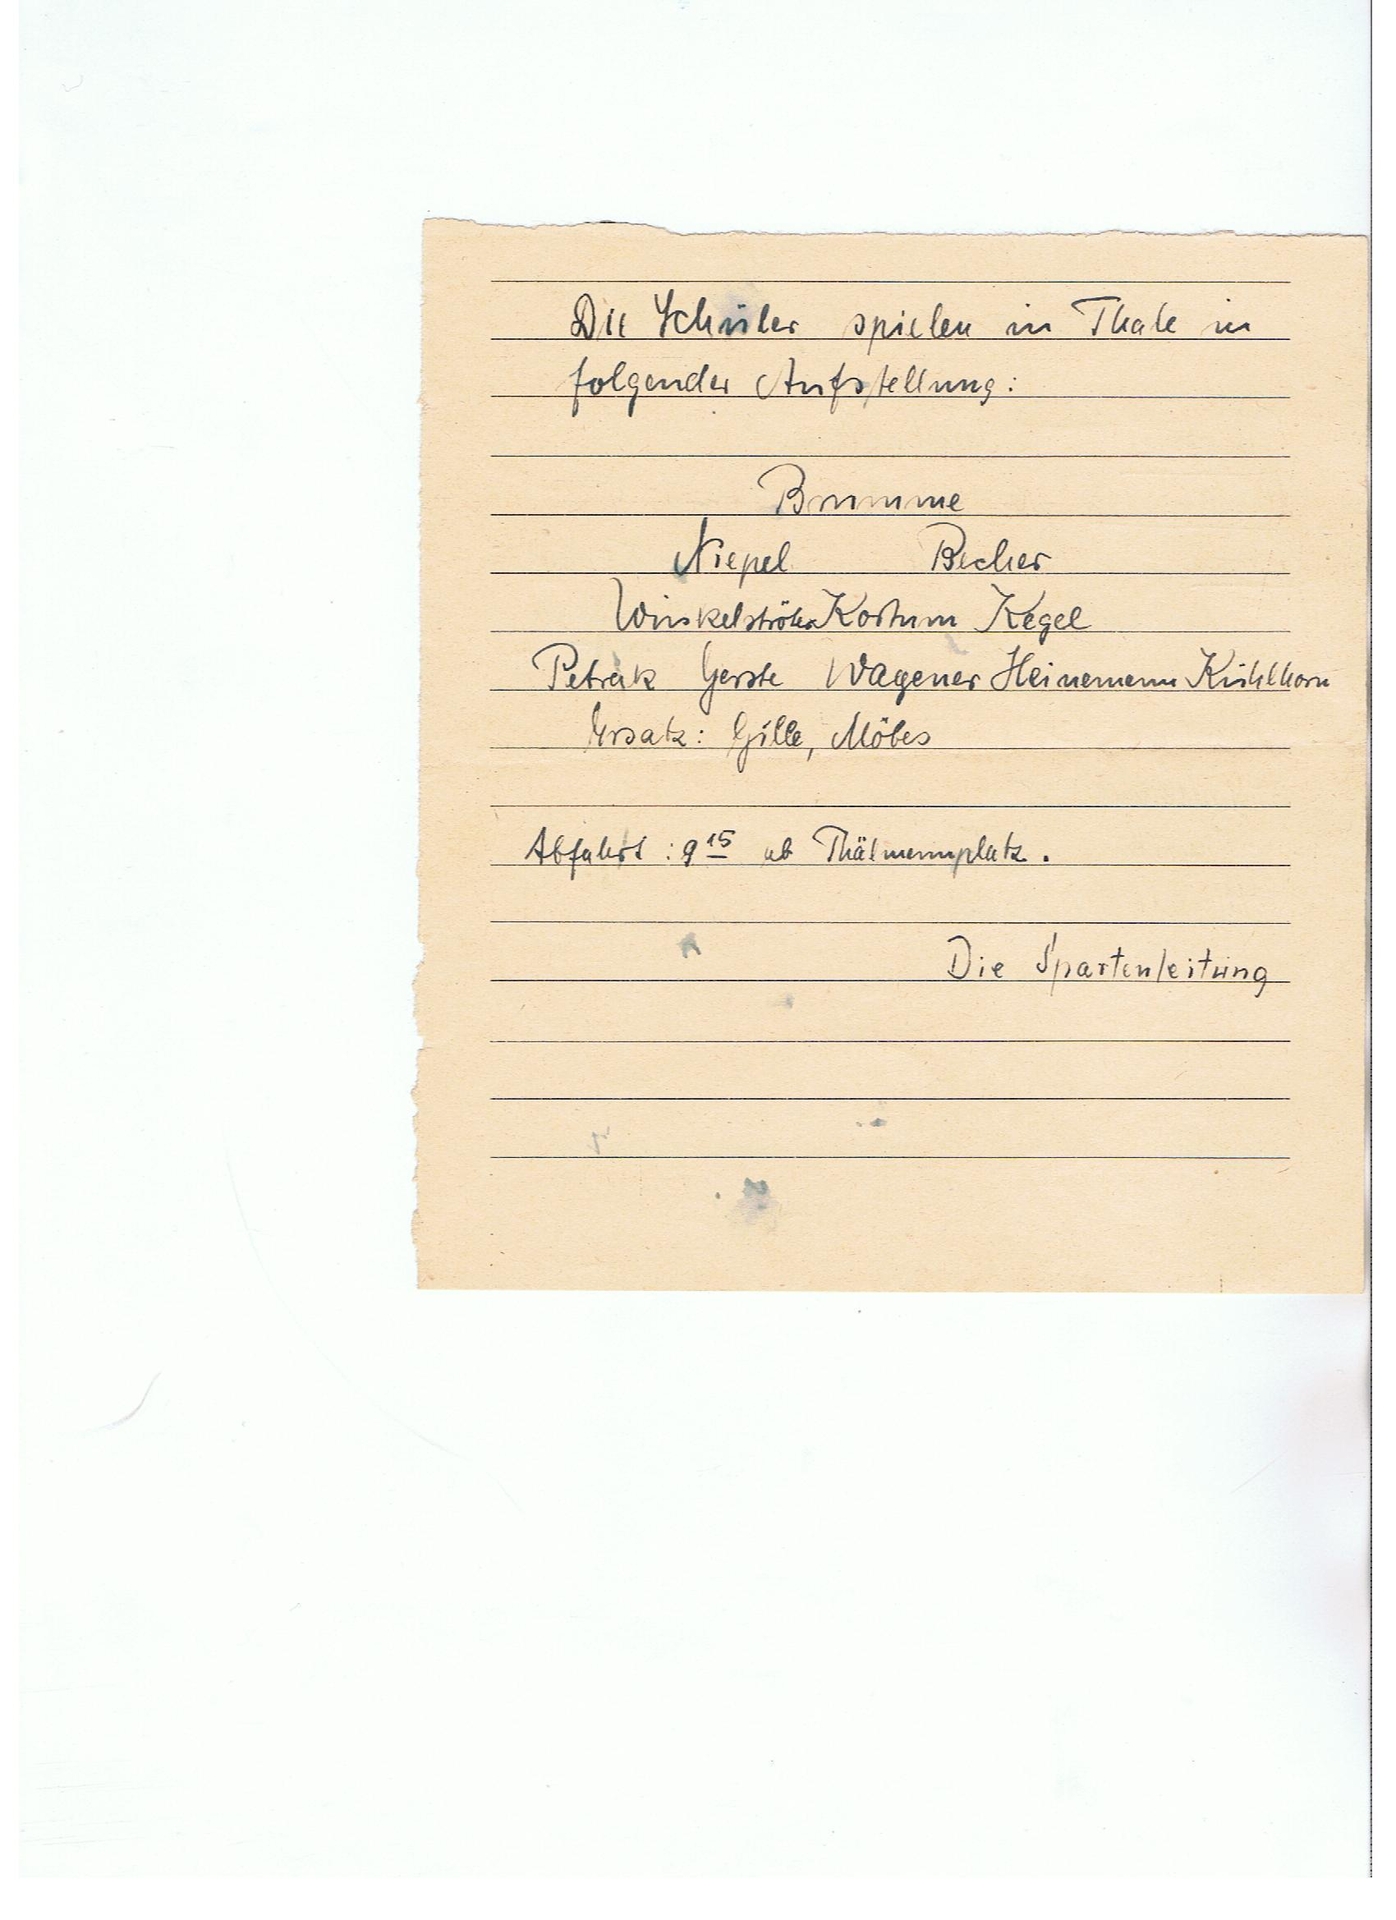 Die Schüler spielen in Thale in
folgender Aufstellung:
Brumme
Niepel Becher
Winkelströter Kostum Kegel
Petrak Gerste Wagener Heinemann Kühlhorn
Ersatz: Gille, Möbes
Abfahrt: 9 15 ab Thälmannplatz.
Die Spartenleitung